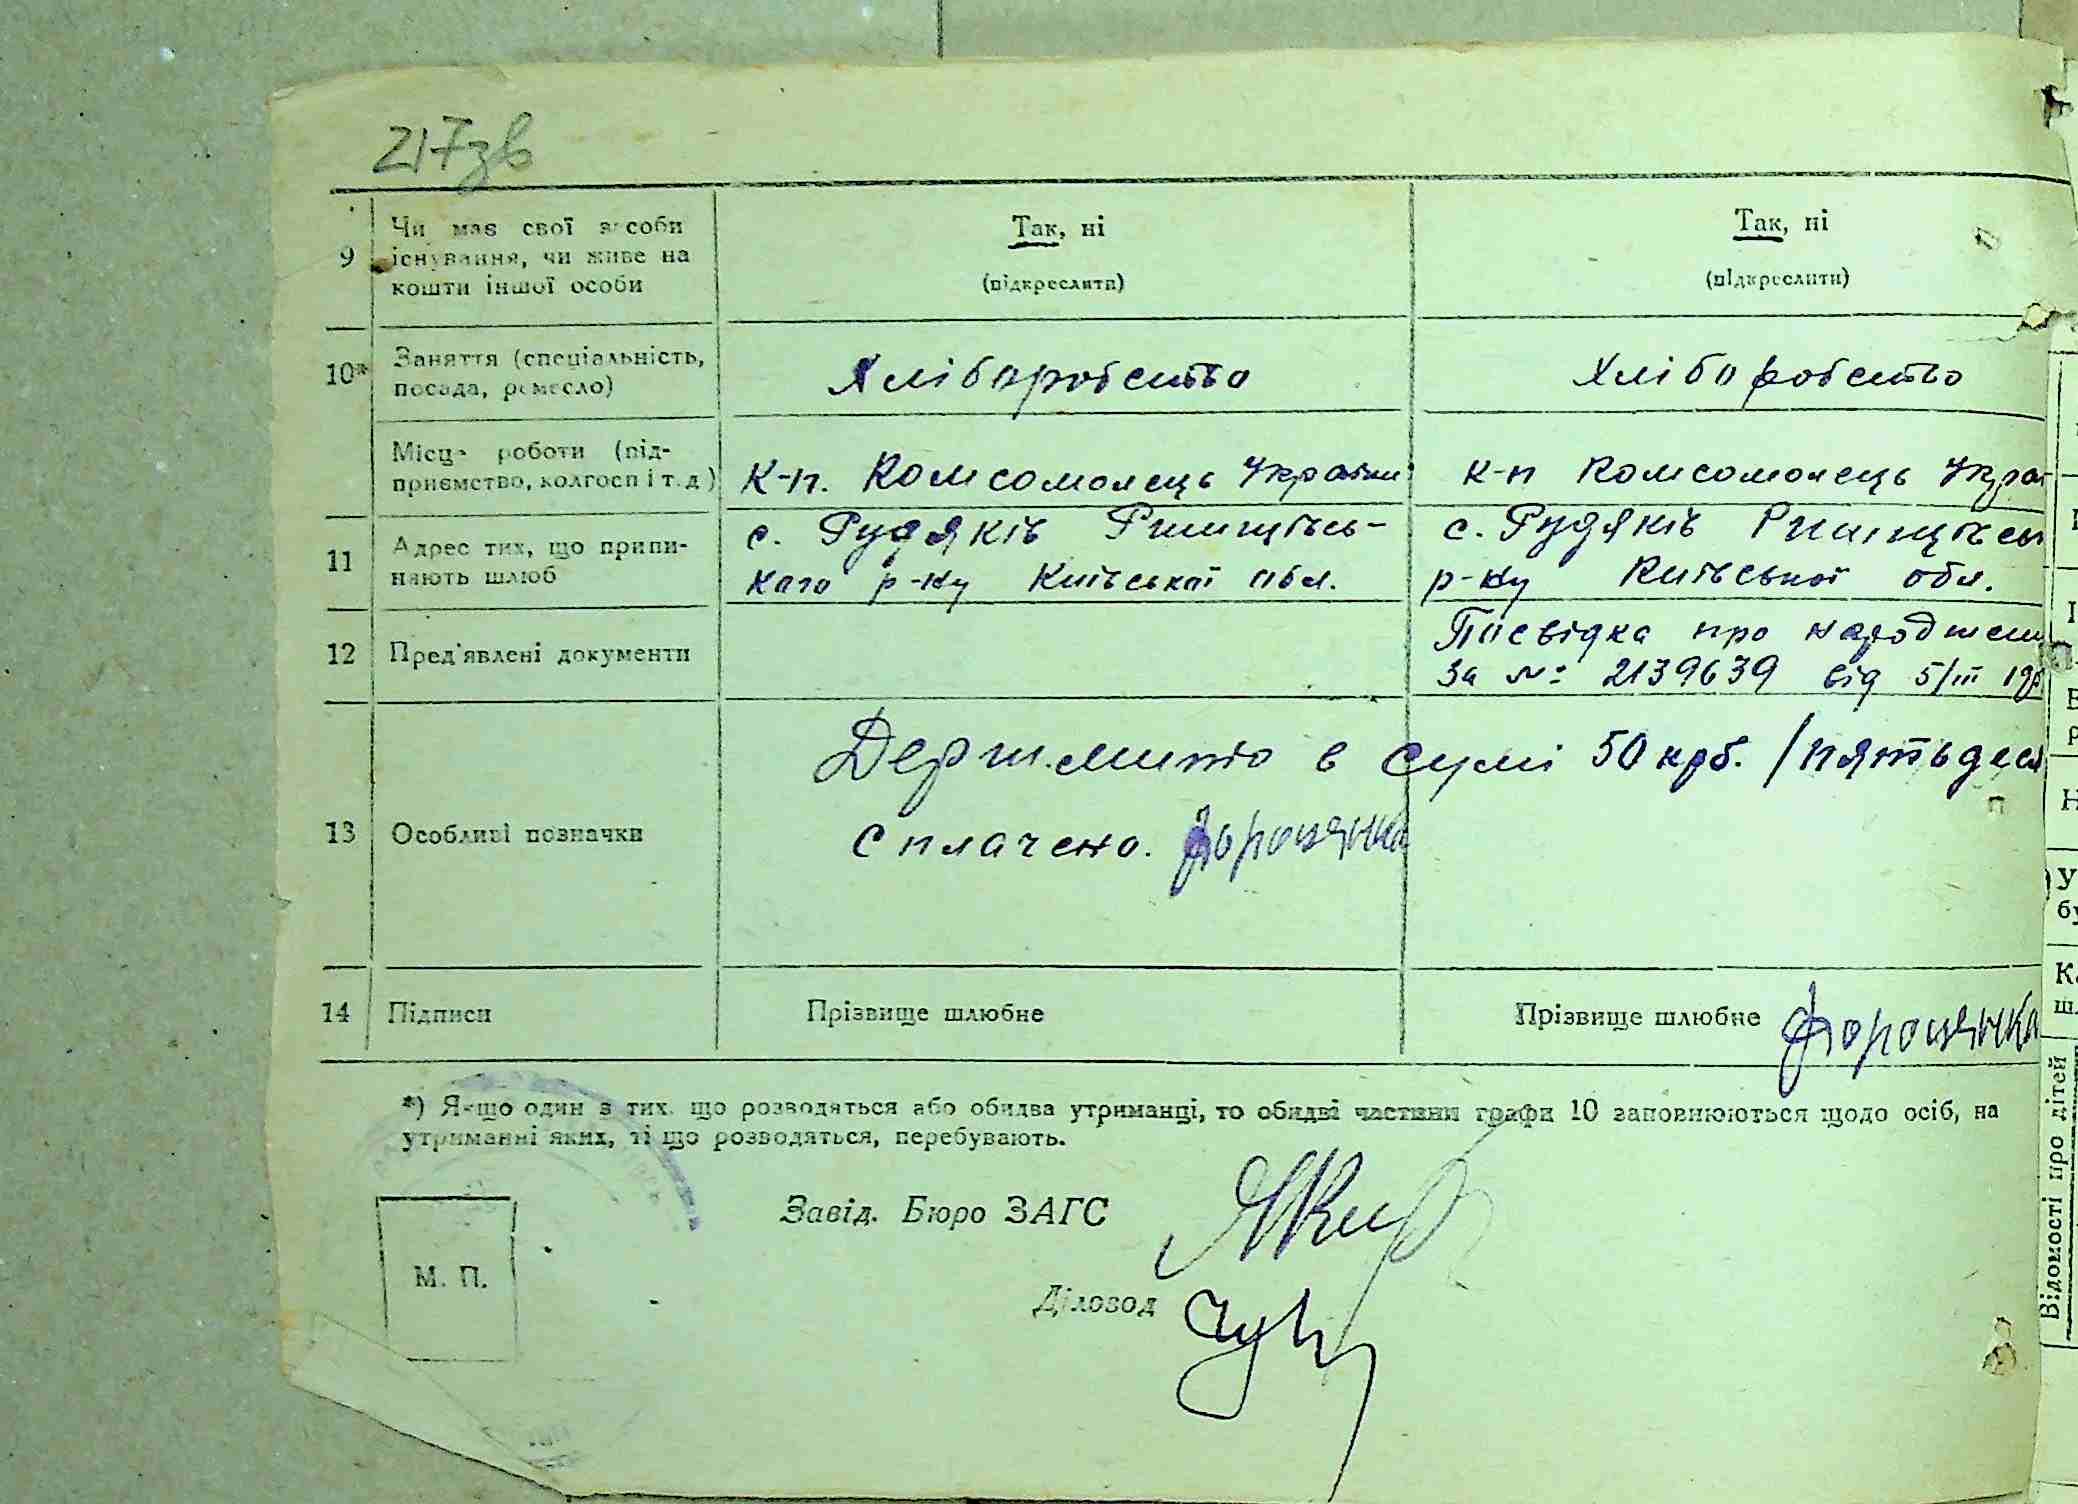 217зв
9 Чи має свої засоби існування, чи живе на кошти іншої особи
Так, ні
(підкреслити)
Так, ні
(підкреслити)
10* Заняття (спеціальність, посада, ремесло)
Хліборобство
Хліборобство
Місце роботи (підприємство, колгосп і т. д)
К-п. Комсомолець України
К-п Комсомолець Украї
11 Адрес тих, що припиняють шлюб
с. Рудяків Ржищівсь-
кого р-ку Київської обл.
с. Рудяків Ржищівсь
р-ку Київської обл.
12 Пред'явлені документи
Посвідка про народжен
за № 2139639 від 5/III 19
13 Особливі позначки
Держ.мито в сумі 50 крб. /пятьдеся
сплачено.
14 Підписи
Прізвище шлюбне
Прізвище шлюбне
*) Якщо один з тих, що розводяться або обидва утриманці, то обидві частини графи 10 заповнюються щодо осіб, на
утриманні яких, ті що розводяться, перебувають.
Завід. Бюро ЗАГС
М. П.
Діловод
Відомості про дітей